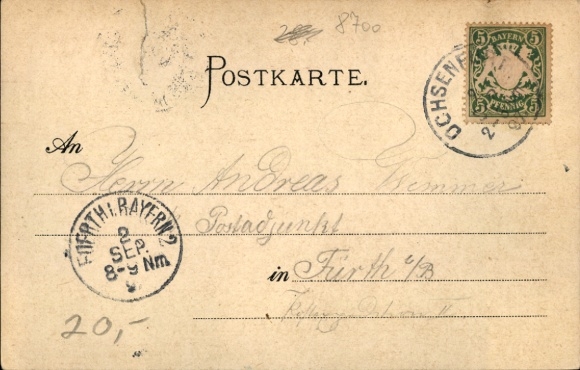 8700
POSTKARTE.
5 BAYERN 5
5 PFENNIG 5
OCHSENF
2
An Herrn Andreas
Postadjunkt
in Fürth i/B
FUERTH I. BAYERN 2
2
SEP.
8-9 Nm
9
20,-